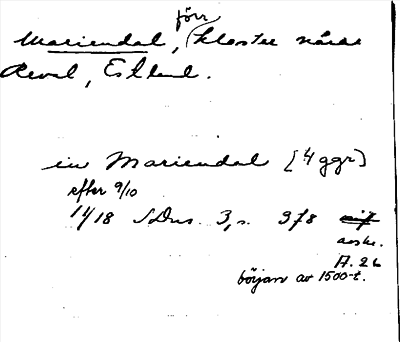 förr
Mariendal, kloster nära
Reval, Estland.
in Mariendal [4 ggr]
efter 9/10
1418 SDns. 3, s. 378
avskr.
A. 26
början av 1500-t.